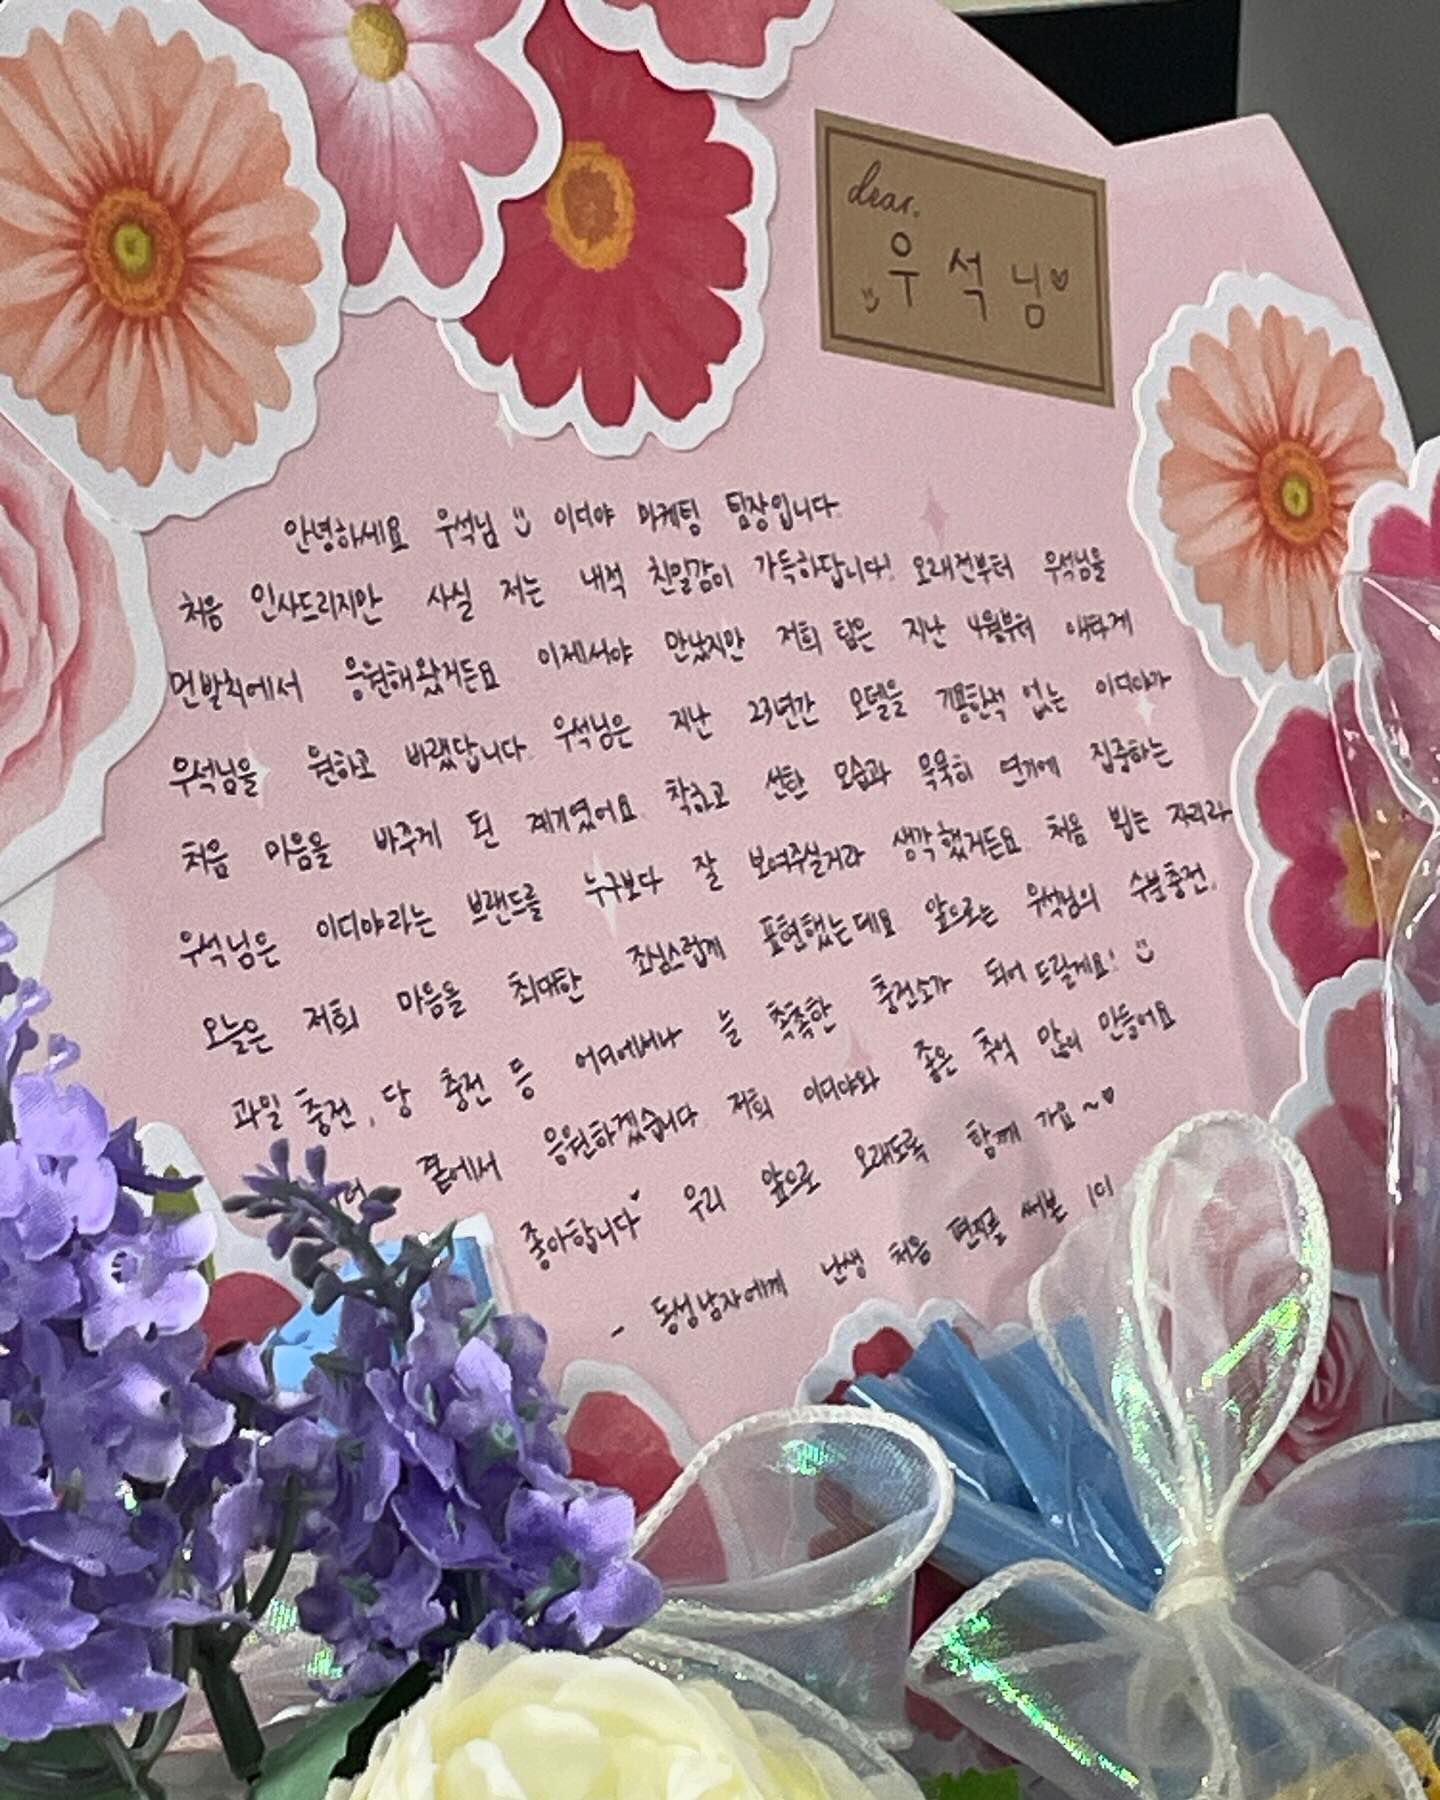 dear.
우석님♡
안녕하세요 우석님 이디야 마케팅 팀장입니다.
처음 인사드리지만 사실 저는 내적 친밀감이 가득하답니다! 오래전부터 우석님을
먼발치에서 응원해왔거든요 이제서야 만났지만 저희 팀은 지난 4월부터 애타게
우석님을 원하고 바랬답니다. 우석님은 지난 23년간 모델을 기용한적 없는 이디야가
처음 마음을 바꾸게 된 계기였어요. 착하고 선한 모습과 묵묵히 연기에 집중하는
우석님은 이디야라는 브랜드를 누구보다 잘 보여주실거라 생각했거든요. 처음 뵙는 자리라
오늘은 저희 마음을 최대한 조심스럽게 표현했는데요 앞으로는 우석님의 수분충전,
과일 충전, 당 충전 등 어디에서나 늘 촉촉한 충전소가 되어 드릴게요!
곁에서 응원하겠습니다. 저희 이디야와 좋은 추억 많이 만들어요
좋아합니다♥ 우리 앞으로 오래도록 함께 가요~♥
- 동성남자에게 난생 처음 편지를 써본 1인